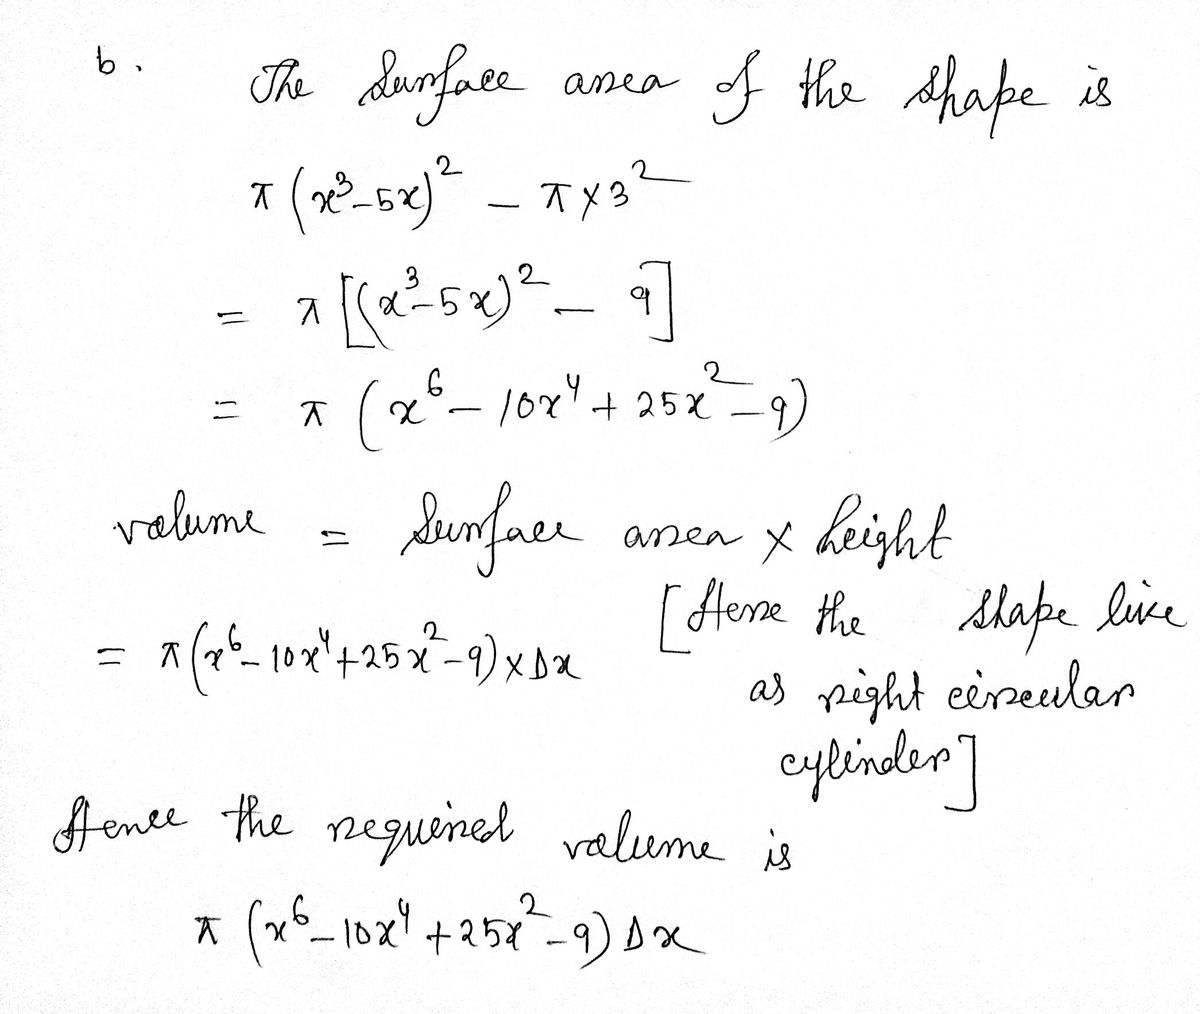 b. The surface area of the shape is
π (x³-5x)² - π×3²
= π [(x³-5x)² - 9]
= π (x⁶ - 10x⁴ + 25x² - 9)
volume = surface area × height
[Here the shape like
= π(x⁶-10x⁴+25x²-9)×Δx
as right circular
cylinder]
Hence the required volume is
π (x⁶-10x⁴+25x²-9) Δx